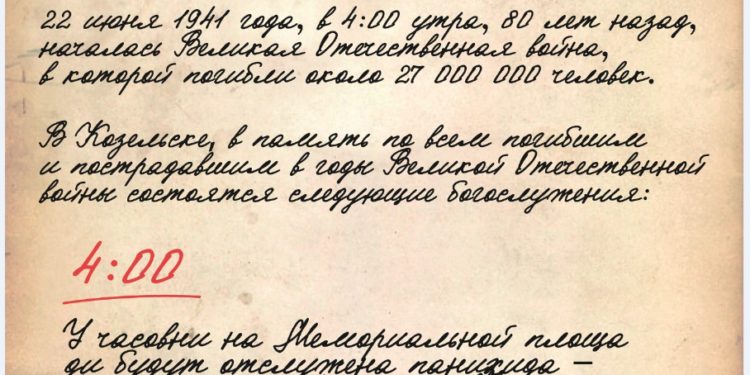 22 июня 1941 года, в 4:00 утра, 80 лет назад,
началась Великая Отечественная война,
в которой погибли около 27 000 000 человек.
В Козельске, в память по всем погибшим
и пострадавшим в годы Великой Отечественной
войны состоятся следующие богослужения:
4:00
У часовни на Мемориальной площа
ди будут отслужена панихида –